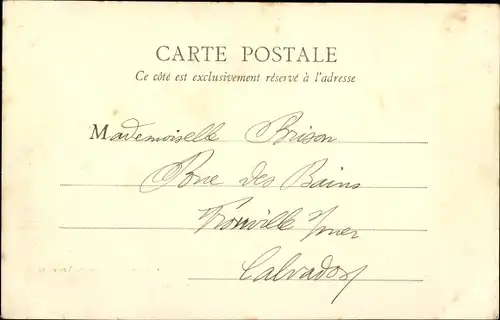 CARTE POSTALE
Ce côté est exclusivement réservé à l'adresse
Mademoiselle Brison
Rue des Bains
Trouville s/mer
Calvados